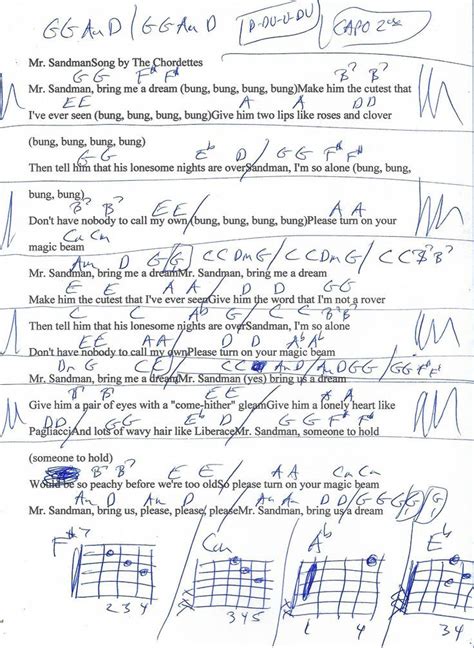 G G Am D / G G Am D D-DU-U-DU CAPO 2
Mr. SandmanSong by The Chordettes
G G F# F# B7 B7
Mr. Sandman, bring me a dream (bung, bung, bung, bung)Make him the cutest that
E E A A D D
I've ever seen (bung, bung, bung, bung)Give him two lips like roses and clover
(bung, bung, bung, bung)
G G Eb D / G G F# F#
Then tell him that his lonesome nights are overSandman, I'm so alone (bung, bung,
bung, bung)
B7 B7 E E A A
Don't have nobody to call my own (bung, bung, bung, bung)Please turn on your
Cm Cm
magic beam
Am D G / G C C Dm G / C C Dm G / C C B7 B7
Mr. Sandman, bring me a dreamMr. Sandman, bring me a dream
E E A A / D D G G
Make him the cutest that I've ever seenGive him the word that I'm not a rover
C C Ab G / C C B7 B7
Then tell him that his lonesome nights are overSandman, I'm so alone
E E A A / D D Ab Ab
Don't have nobody to call my ownPlease turn on your magic beam
Dm G C E / Am D / Am D G G / G G F# F#
Mr. Sandman, bring me a dreamMr. Sandman (yes) bring us a dream
B7 B7 E E A A
Give him a pair of eyes with a "come-hither" gleamGive him a lonely heart like
D D / G G Eb D / G G F# F#
PagliacciAnd lots of wavy hair like LiberaceMr. Sandman, someone to hold
(someone to hold)
B7 B7 E E A A Cm Cm
Would be so peachy before we're too oldSo please turn on your magic beam
Am D Am D Am D D / G G G G / G
Mr. Sandman, bring us, please, please, pleaseMr. Sandman, bring us a dream
F#7 Cm Ab Eb
2 3 4 3 4 5 1 4 3 4